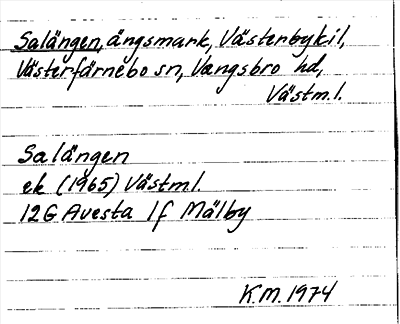 Salängen, ängsmark, Västerbykil,
Västerfärnebo sn, Vangsbro hd,
Västm.l.
Salängen
ek (1965) Västml.
12G Avesta 1f Mälby
K.M. 1974